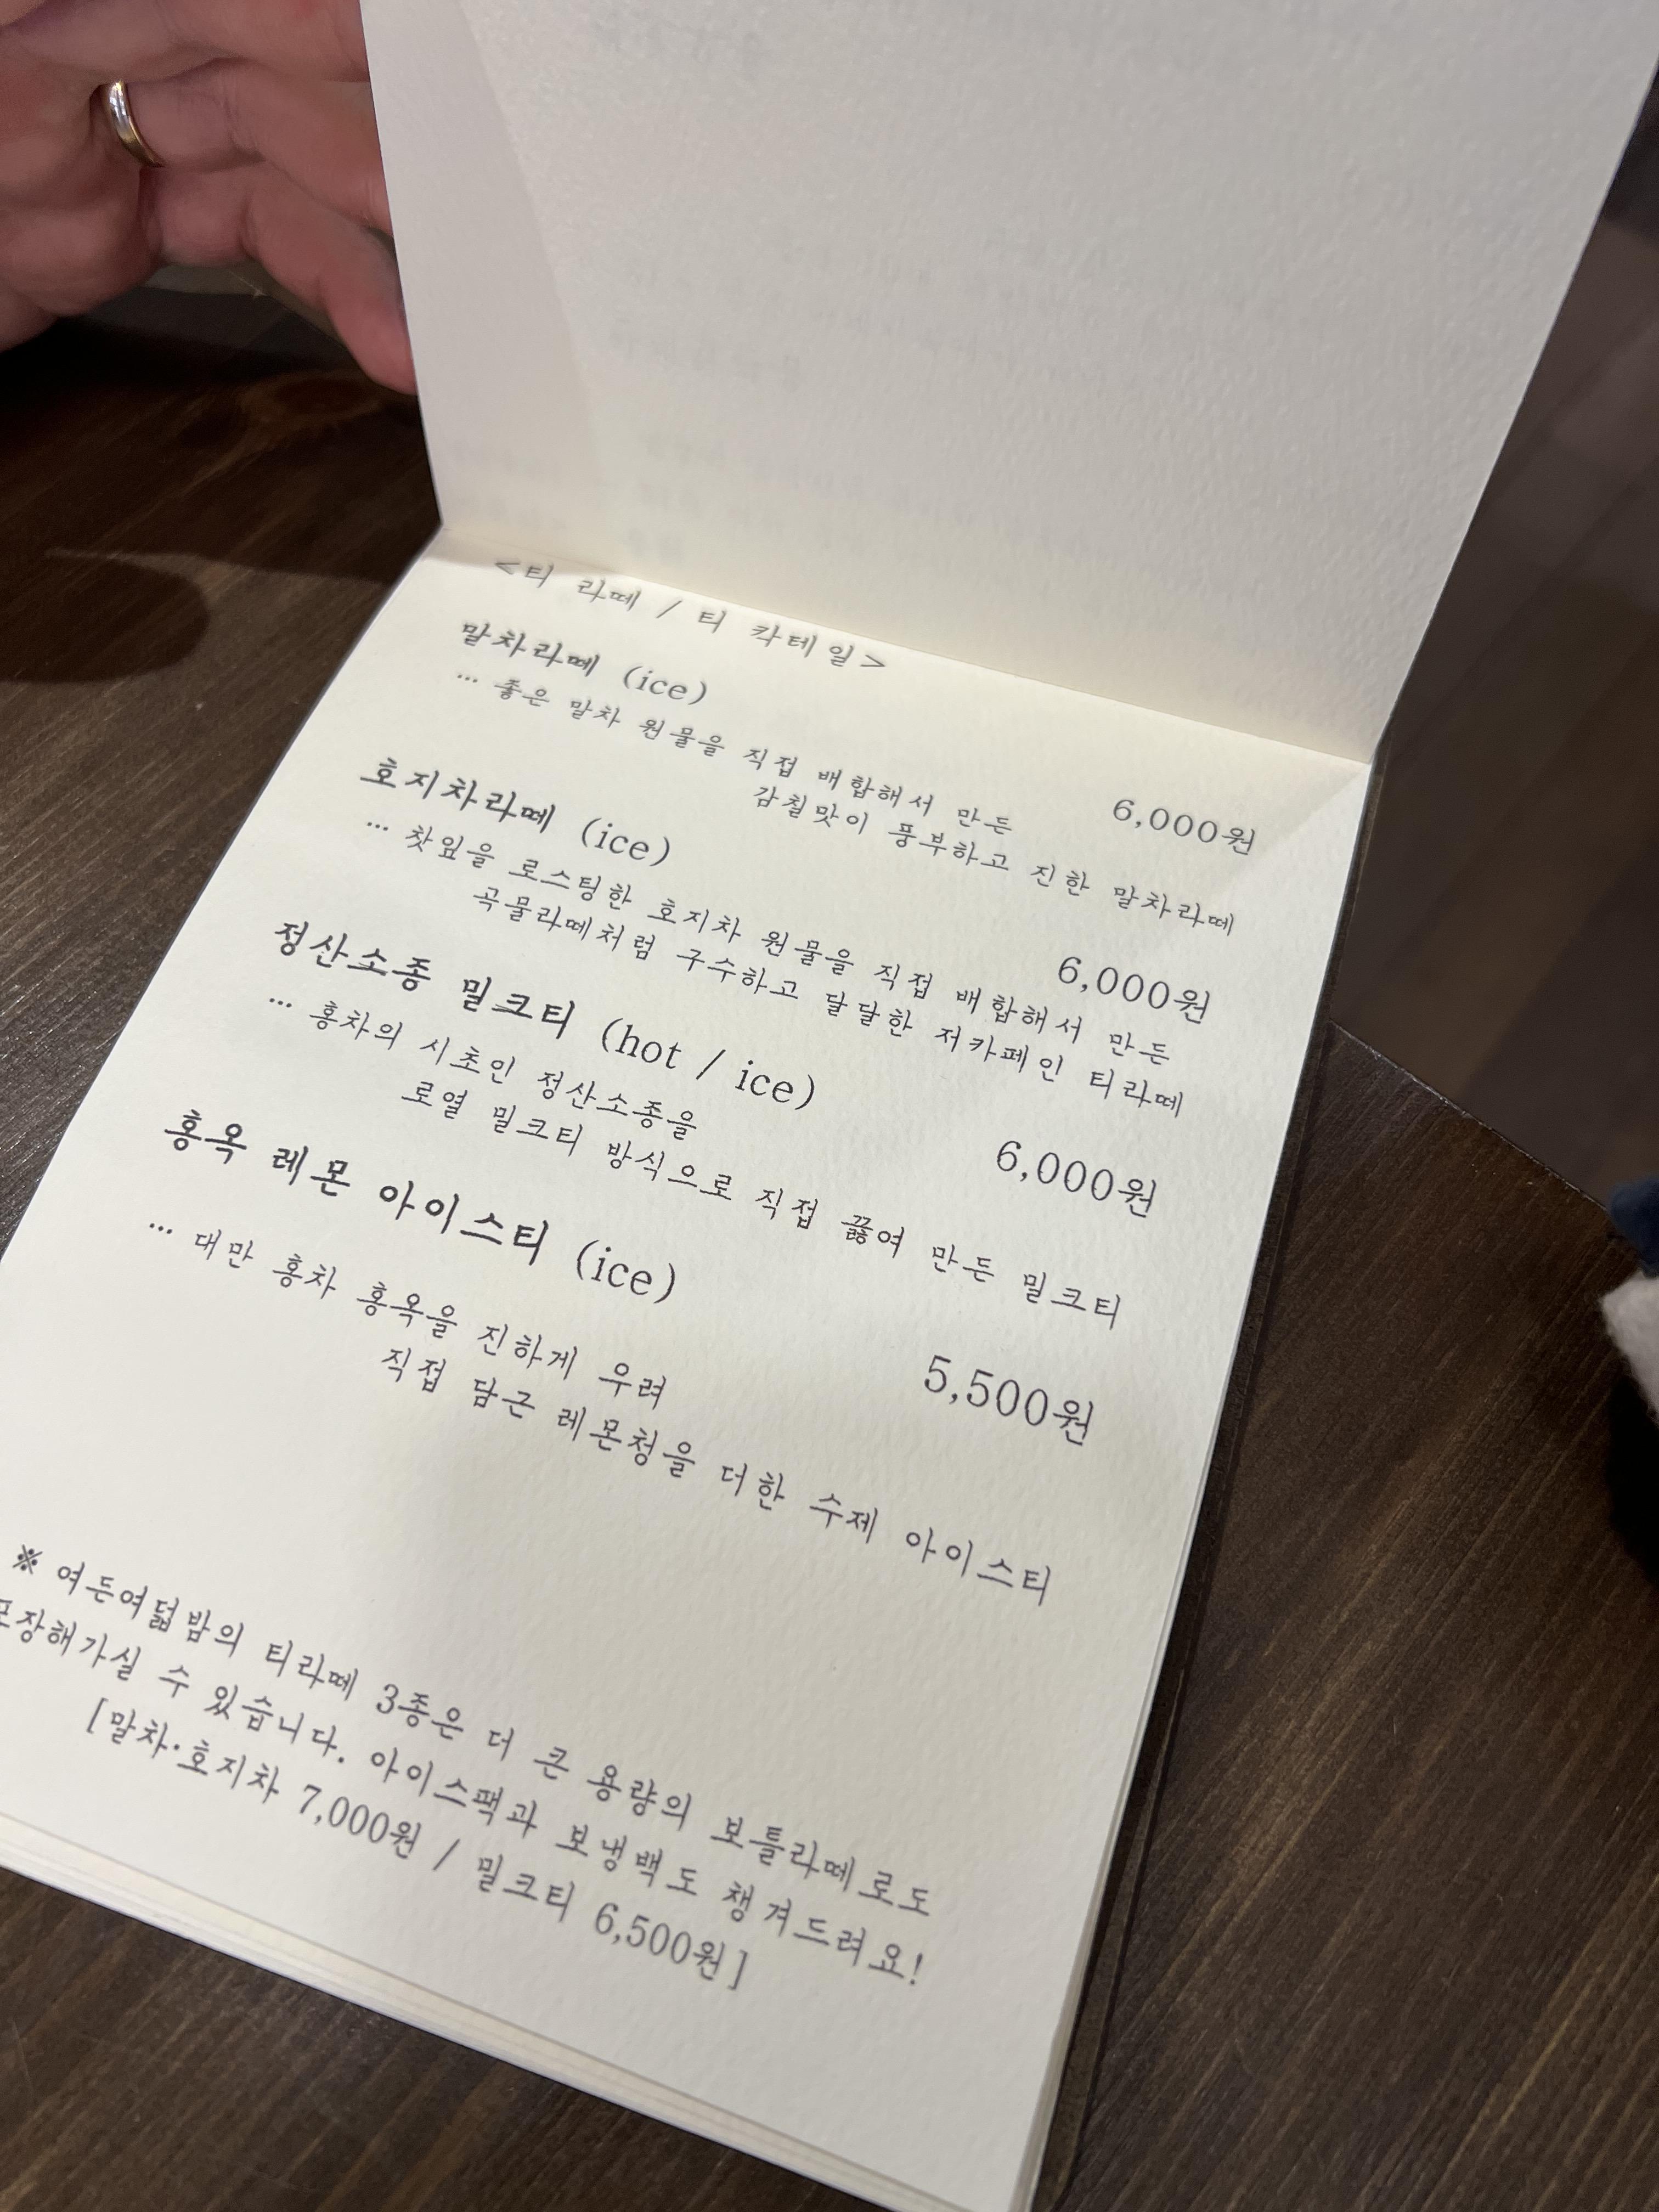 <티 라떼 / 티 칵테일>
말차라떼 (ice) 6,000원
… 좋은 말차 원물을 직접 배합해서 만든
감칠맛이 풍부하고 진한 말차라떼
호지차라떼 (ice) 6,000원
… 찻잎을 로스팅한 호지차 원물을 직접 배합해서 만든
곡물라떼처럼 구수하고 달달한 저카페인 티라떼
정산소종 밀크티 (hot / ice) 6,000원
… 홍차의 시초인 정산소종을
로열 밀크티 방식으로 직접 끓여 만든 밀크티
홍옥 레몬 아이스티 (ice) 5,500원
… 대만 홍차 홍옥을 진하게 우려
직접 담근 레몬청을 더한 수제 아이스티
※ 여든여덟밤의 티라떼 3종은 더 큰 용량의 보틀라떼로도
포장해가실 수 있습니다. 아이스팩과 보냉백도 챙겨드려요!
[말차·호지차 7,000원 / 밀크티 6,500원]